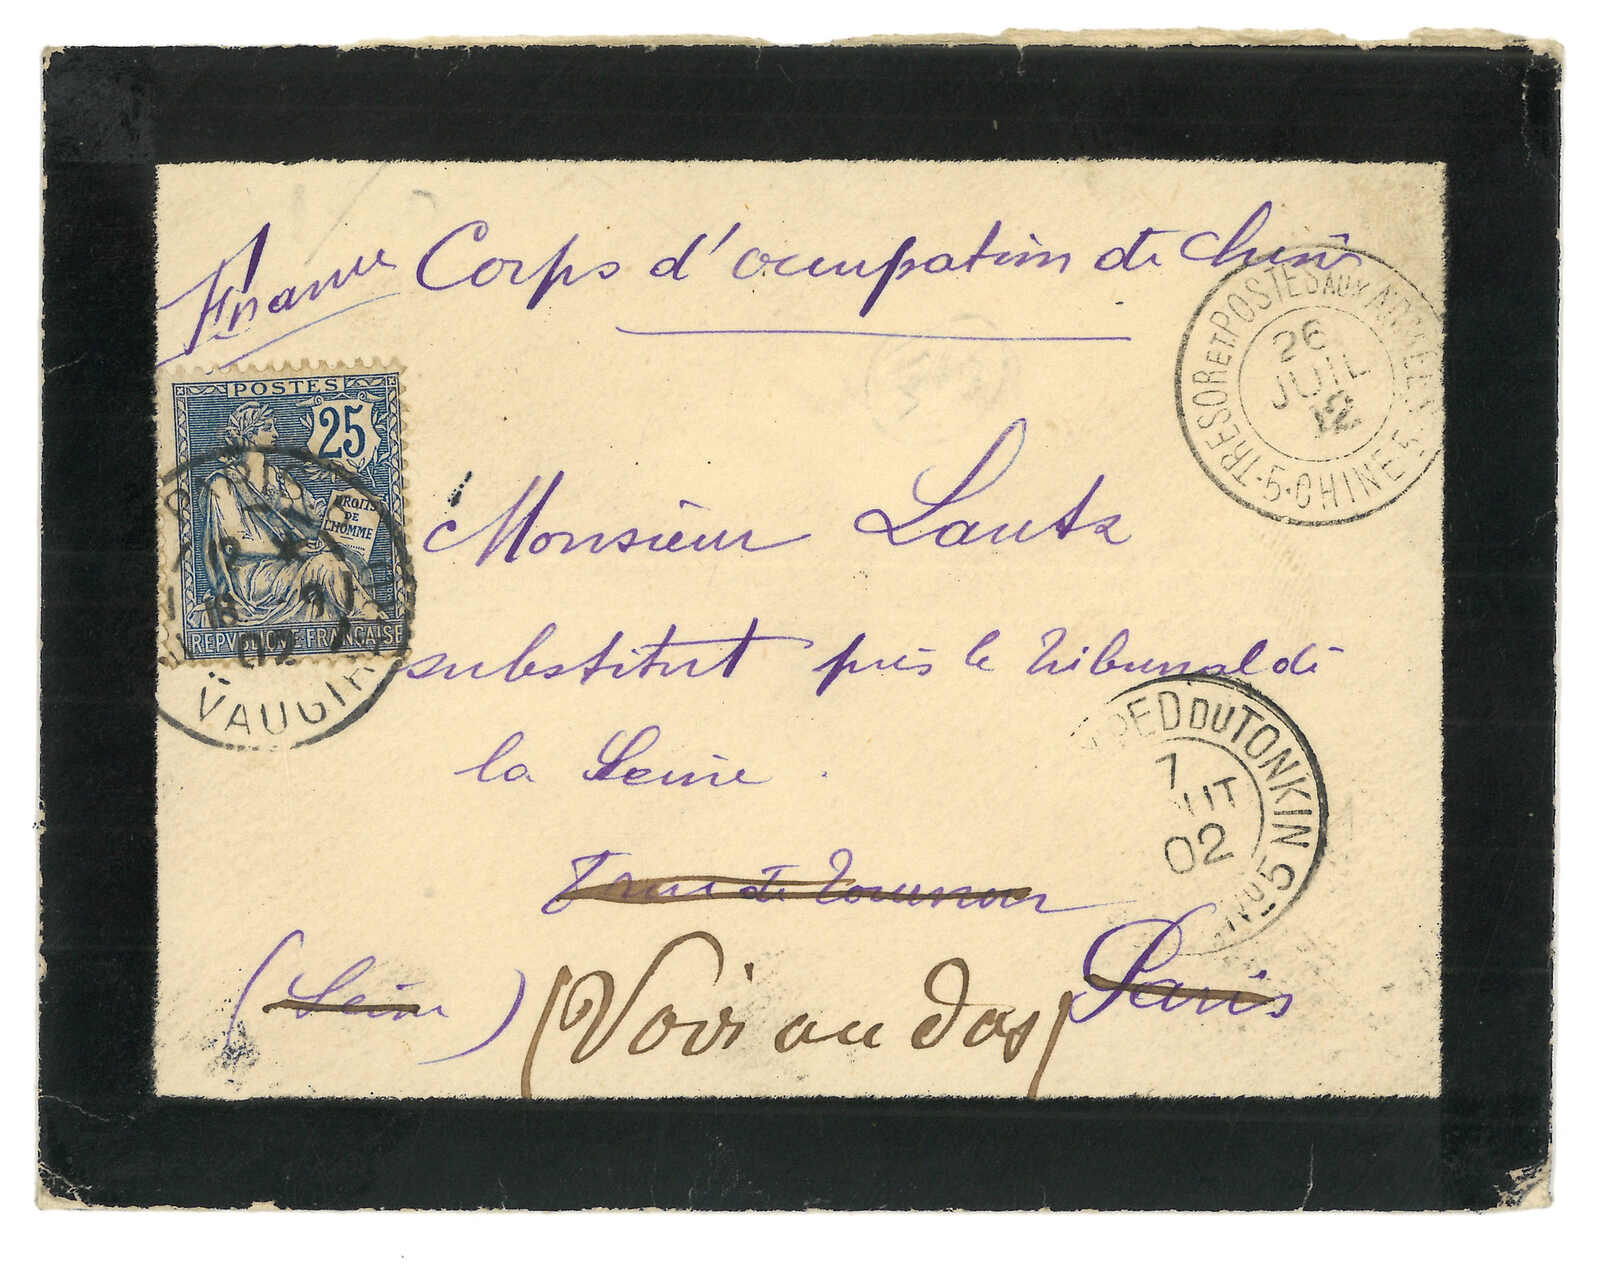 France Corps d'occupation de Chine
POSTES
25
DROITS
DE
L'HOMME
REPVBLIQVE FRANÇAISE
PARIS
18
02
VAUGIR
TRESOR ET POSTES AUX ARMEES
26
JUIL
02
·5·CHINE 5·
Monsieur Lautz
substitut près le tribunal de
la Seine.
PED DU TONKIN
7
UT
02
No 5
rue de Tournon
(Seine) (Voir au dos) Paris